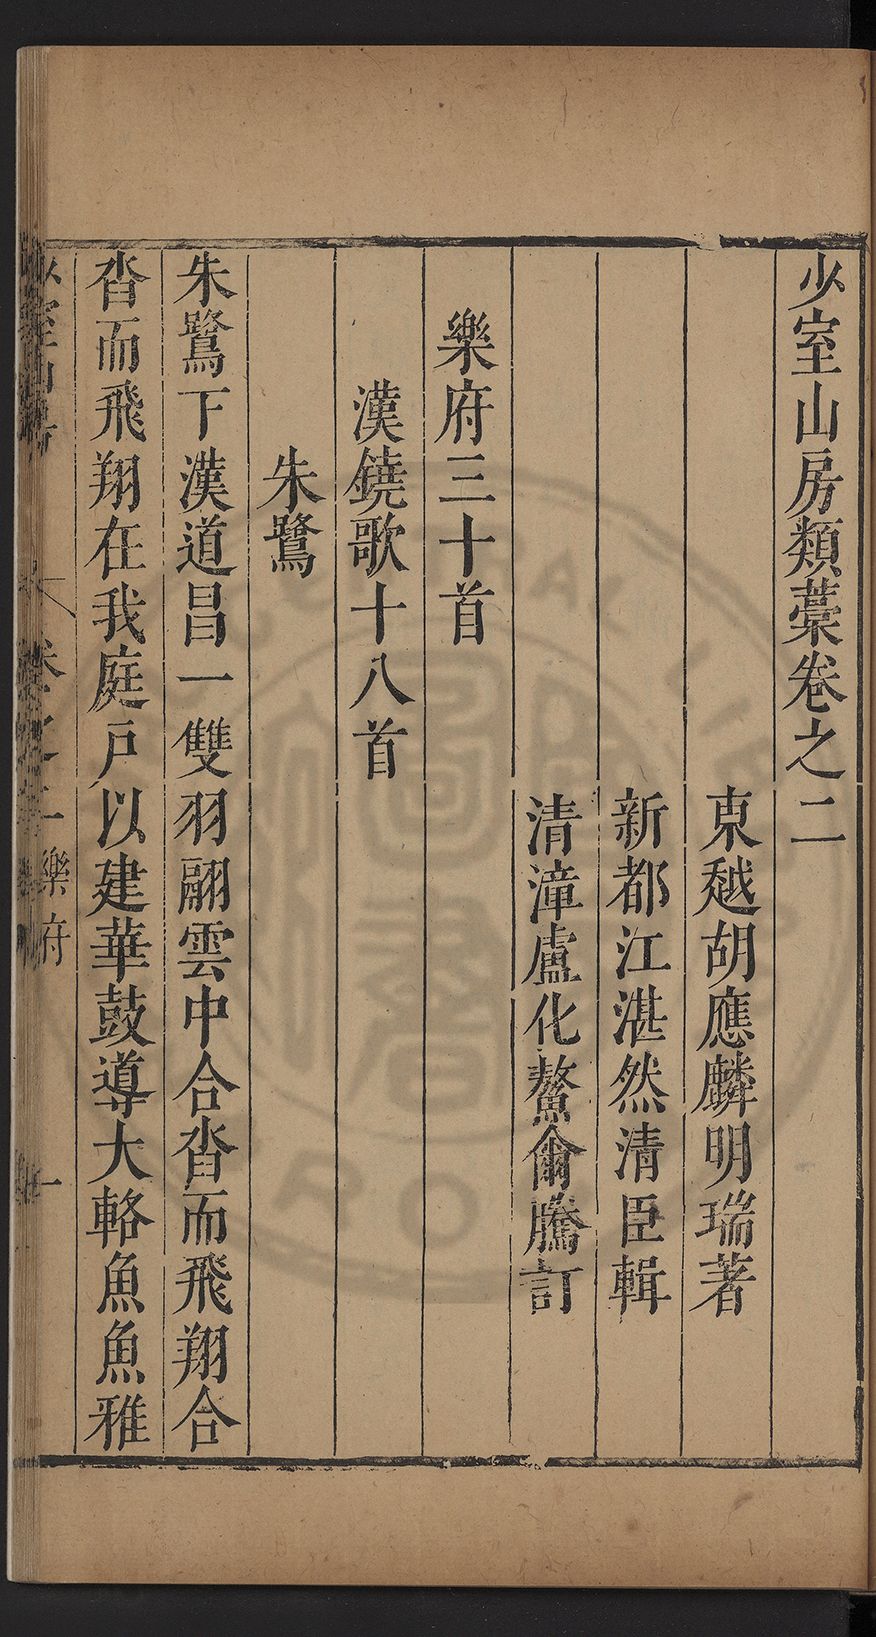 少室山房類藁卷之二
東越胡應麟明瑞著
新都江湛然清臣輯
清漳盧化鰲爾騰訂
樂府三十首
漢鐃歌十八首
朱鷺
朱鷺下漢道昌一雙羽翮雲中合沓而飛翔合
沓而飛翔在我庭戶以建華鼓導大輅魚魚雅
少室山房
卷之二
樂府
一